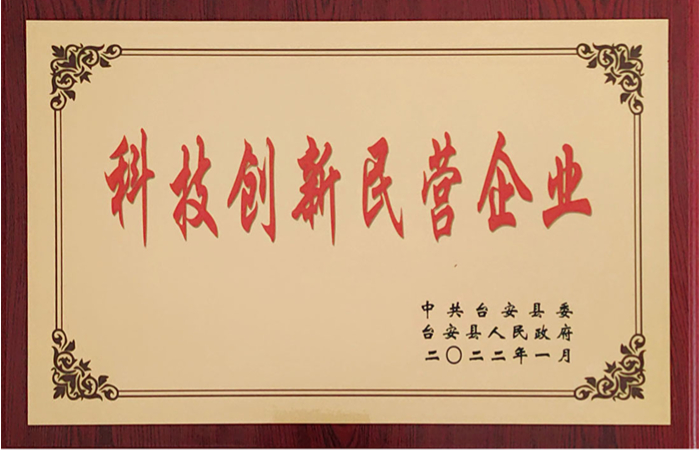 科技创新民营企业
中共台安县委
台安县人民政府
二〇二二年一月